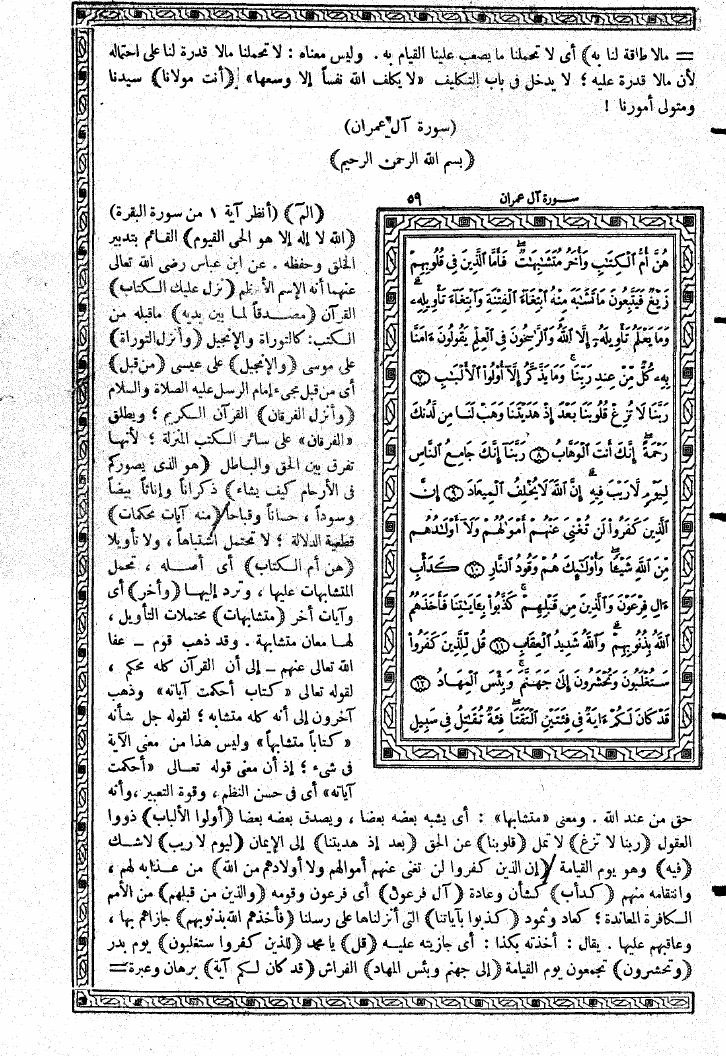 = مالا طاقة لنا به) أى لا تحملنا ما يصعب علينا القيام به . وليس معناه : لا تحملنا مالا قدرة لنا على احتماله
لأن مالا قدرة عليه ؛ لا يدخل فى باب التكليف «لا يكلف الله نفساً إلا وسعها» (أنت مولانا) سيدنا
ومتولى أمورنا !
(سورة آل عمران)
(بسم الله الرحمن الرحيم)
(الم) (أنظر آية ١ من سورة البقرة)
(الله لا إله إلا هو الحى القيوم) القائم بتدبير
الخلق وحفظه . عن ابن عباس رضى الله تعالى
عنهما أنه الإسم الأعظم (نزل عليك الكتاب)
القرآن (مصدقاً لما بين يديه) ماقبله من
الكتب: كالتوراة والإنجيل (وأنزل التوراة)
على موسى (والإنجيل) على عيسى (من قبل)
أى من قبل مجىء إمام الرسل عليه الصلاة والسلام
(وأنزل الفرقان) القرآن الكريم ؛ ويطلق
«الفرقان» على سائر الكتب المنزلة ؛ لأنها
تفرق بين الحق والباطل (هو الذى يصوركم
فى الأرحام كيف يشاء) ذكراناً وإناثاً بيضاً
وسوداً ، حساناً وقباحاً (منه آيات محكمات)
قطعية الدلالة ؛ لا تحتمل اشتباهاً ، ولا تأويلا
(هن أم الكتاب) أى أصله ، تحمل
المتشابهات عليها ، وترد إليها (وأخر) أى
وآيات أخر (متشابهات) محتملات التأويل ،
لها معان متشابهة . وقد ذهب قوم – عفا
الله تعالى عنهم – إلى أن القرآن كله محكم ،
لقوله تعالى «كتاب أحكمت آياته» وذهب
آخرون إلى أنه كله متشابه ؛ لقوله جل شأنه
«كتاباً متشابهاً» وليس هذا من معنى الآية
فى شىء ؛ إذ أن معنى قوله تعالى «أحكمت
آياته» أى فى حسن النظم ، وقوة التعبير ، وأنه
سورة آل عمران ٥٩
هُنَّ أُمُّ الْكِتَٰبِ وَأُخَرُ مُتَشَٰبِهَٰتٌ فَأَمَّا الَّذِينَ فِى قُلُوبِهِمْ
زَيْغٌ فَيَتَّبِعُونَ مَا تَشَٰبَهَ مِنْهُ ابْتِغَآءَ الْفِتْنَةِ وَابْتِغَآءَ تَأْوِيلِهِۦ
وَمَا يَعْلَمُ تَأْوِيلَهُۥٓ إِلَّا اللَّهُ وَالرَّٰسِخُونَ فِى الْعِلْمِ يَقُولُونَ ءَامَنَّا
بِهِۦ كُلٌّ مِّنْ عِندِ رَبِّنَا وَمَا يَذَّكَّرُ إِلَّآ أُو۟لُوا الْأَلْبَٰبِ ۝٧
رَبَّنَا لَا تُزِغْ قُلُوبَنَا بَعْدَ إِذْ هَدَيْتَنَا وَهَبْ لَنَا مِن لَّدُنكَ
رَحْمَةً إِنَّكَ أَنتَ الْوَهَّابُ ۝٨ رَبَّنَآ إِنَّكَ جَامِعُ النَّاسِ
لِيَوْمٍ لَّا رَيْبَ فِيهِ إِنَّ اللَّهَ لَا يُخْلِفُ الْمِيعَادَ ۝٩ إِنَّ
الَّذِينَ كَفَرُوا لَن تُغْنِىَ عَنْهُمْ أَمْوَٰلُهُمْ وَلَآ أَوْلَٰدُهُم
مِّنَ اللَّهِ شَيْـًٔا وَأُو۟لَٰٓئِكَ هُمْ وَقُودُ النَّارِ ۝١٠ كَدَأْبِ
ءَالِ فِرْعَوْنَ وَالَّذِينَ مِن قَبْلِهِمْ كَذَّبُوا بِـَٔايَٰتِنَا فَأَخَذَهُمُ
اللَّهُ بِذُنُوبِهِمْ وَاللَّهُ شَدِيدُ الْعِقَابِ ۝١١ قُل لِّلَّذِينَ كَفَرُوا
سَتُغْلَبُونَ وَتُحْشَرُونَ إِلَىٰ جَهَنَّمَ وَبِئْسَ الْمِهَادُ ۝١٢
قَدْ كَانَ لَكُمْ ءَايَةٌ فِى فِئَتَيْنِ الْتَقَتَا فِئَةٌ تُقَٰتِلُ فِى سَبِيلِ
حق من عند الله . ومعنى «متشابها» : أى يشبه بعضه بعضا ، ويصدق بعضه بعضا (أولوا الألباب) ذووا
العقول (ربنا لا تزغ) لا تمل (قلوبنا) عن الحق (بعد إذ هديتنا) إلى الإيمان (ليوم لا ريب) لاشك
(فيه) وهو يوم القيامة (إن الذين كفروا لن تغنى عنهم أموالهم ولا أولادهم من الله) من عذابه لهم ،
وانتقامه منهم (كدأب) كشأن وعادة (آل فرعون) أى فرعون وقومه (والذين من قبلهم) من الأمم
الكافرة المعاندة ؛ كعاد وثمود (كذبوا بآياتنا) التى أنزلناها على رسلنا (فأخذهم الله بذنوبهم) جازاهم بها ،
وعاقبهم عليها . يقال : أخذته بكذا : أى جازيته عليه (قل) يا محمد (للذين كفروا ستغلبون) يوم بدر
(وتحشرون) تجمعون يوم القيامة (إلى جهنم وبئس المهاد) الفراش (قد كان لكم آية) برهان وعبرة =